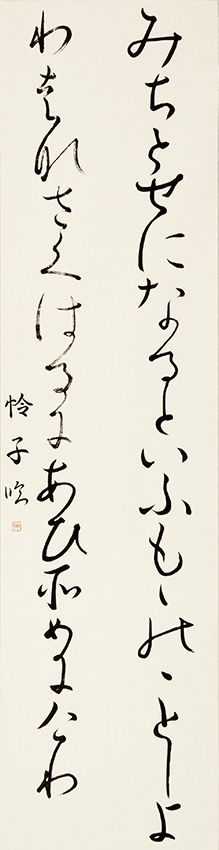 みちとせになるといふもゝのことしよ
りはなさくはるにあひそめにけり
怜子